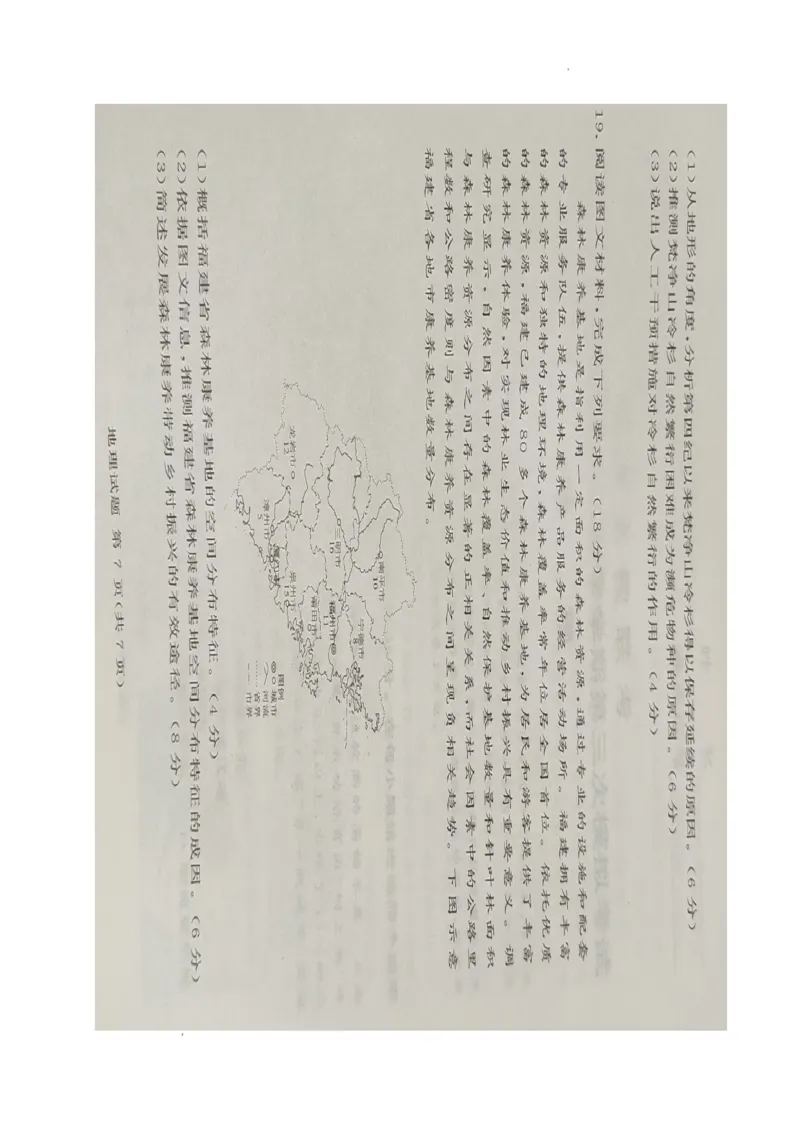 (1)从地形的角度,分析第四纪以来梵净山冷杉得以保存延续的原因。(6分)
(2)推测梵净山冷杉自然繁衍困难成为濒危物种的原因。(6分)
(3)说出人工干预措施对冷杉自然繁衍的作用。(4分)
19.阅读图文材料,完成下列要求。(18分)
森林康养基地是指利用一定面积的森林资源,通过专业的设施和配套
的专业服务队伍,提供森林康养产品服务的经营活动场所。福建拥有丰富
的森林资源和独特的地理环境,森林覆盖率常年位居全国首位。依托优质
的森林资源,福建已建成80多个森林康养基地,为居民和游客提供了丰富
的森林康养体验,对实现林业生态价值和推动乡村振兴具有重要意义。调
查研究显示,自然因素中的森林覆盖率、自然保护基地数量和针叶林面积
与森林康养资源分布之间存在显著的正相关关系,而社会因素中的公路里
程数和公路密度则与森林康养资源分布之间呈现负相关趋势。下图示意
福建省各地市康养基地数量分布。
南平市
10
宁德市
8
三明市
16
福州市
11
莆田市
8
龙岩市
12
泉州市
漳州市
5
厦门市
图例
城市
河流
省界
市界
(1)概括福建省森林康养基地的空间分布特征。(4分)
(2)依据图文信息,推测福建省森林康养基地空间分布特征的成因。(6分)
(3)简述发展森林康养带动乡村振兴的有效途径。(8分)
地理试题 第7页(共7页)